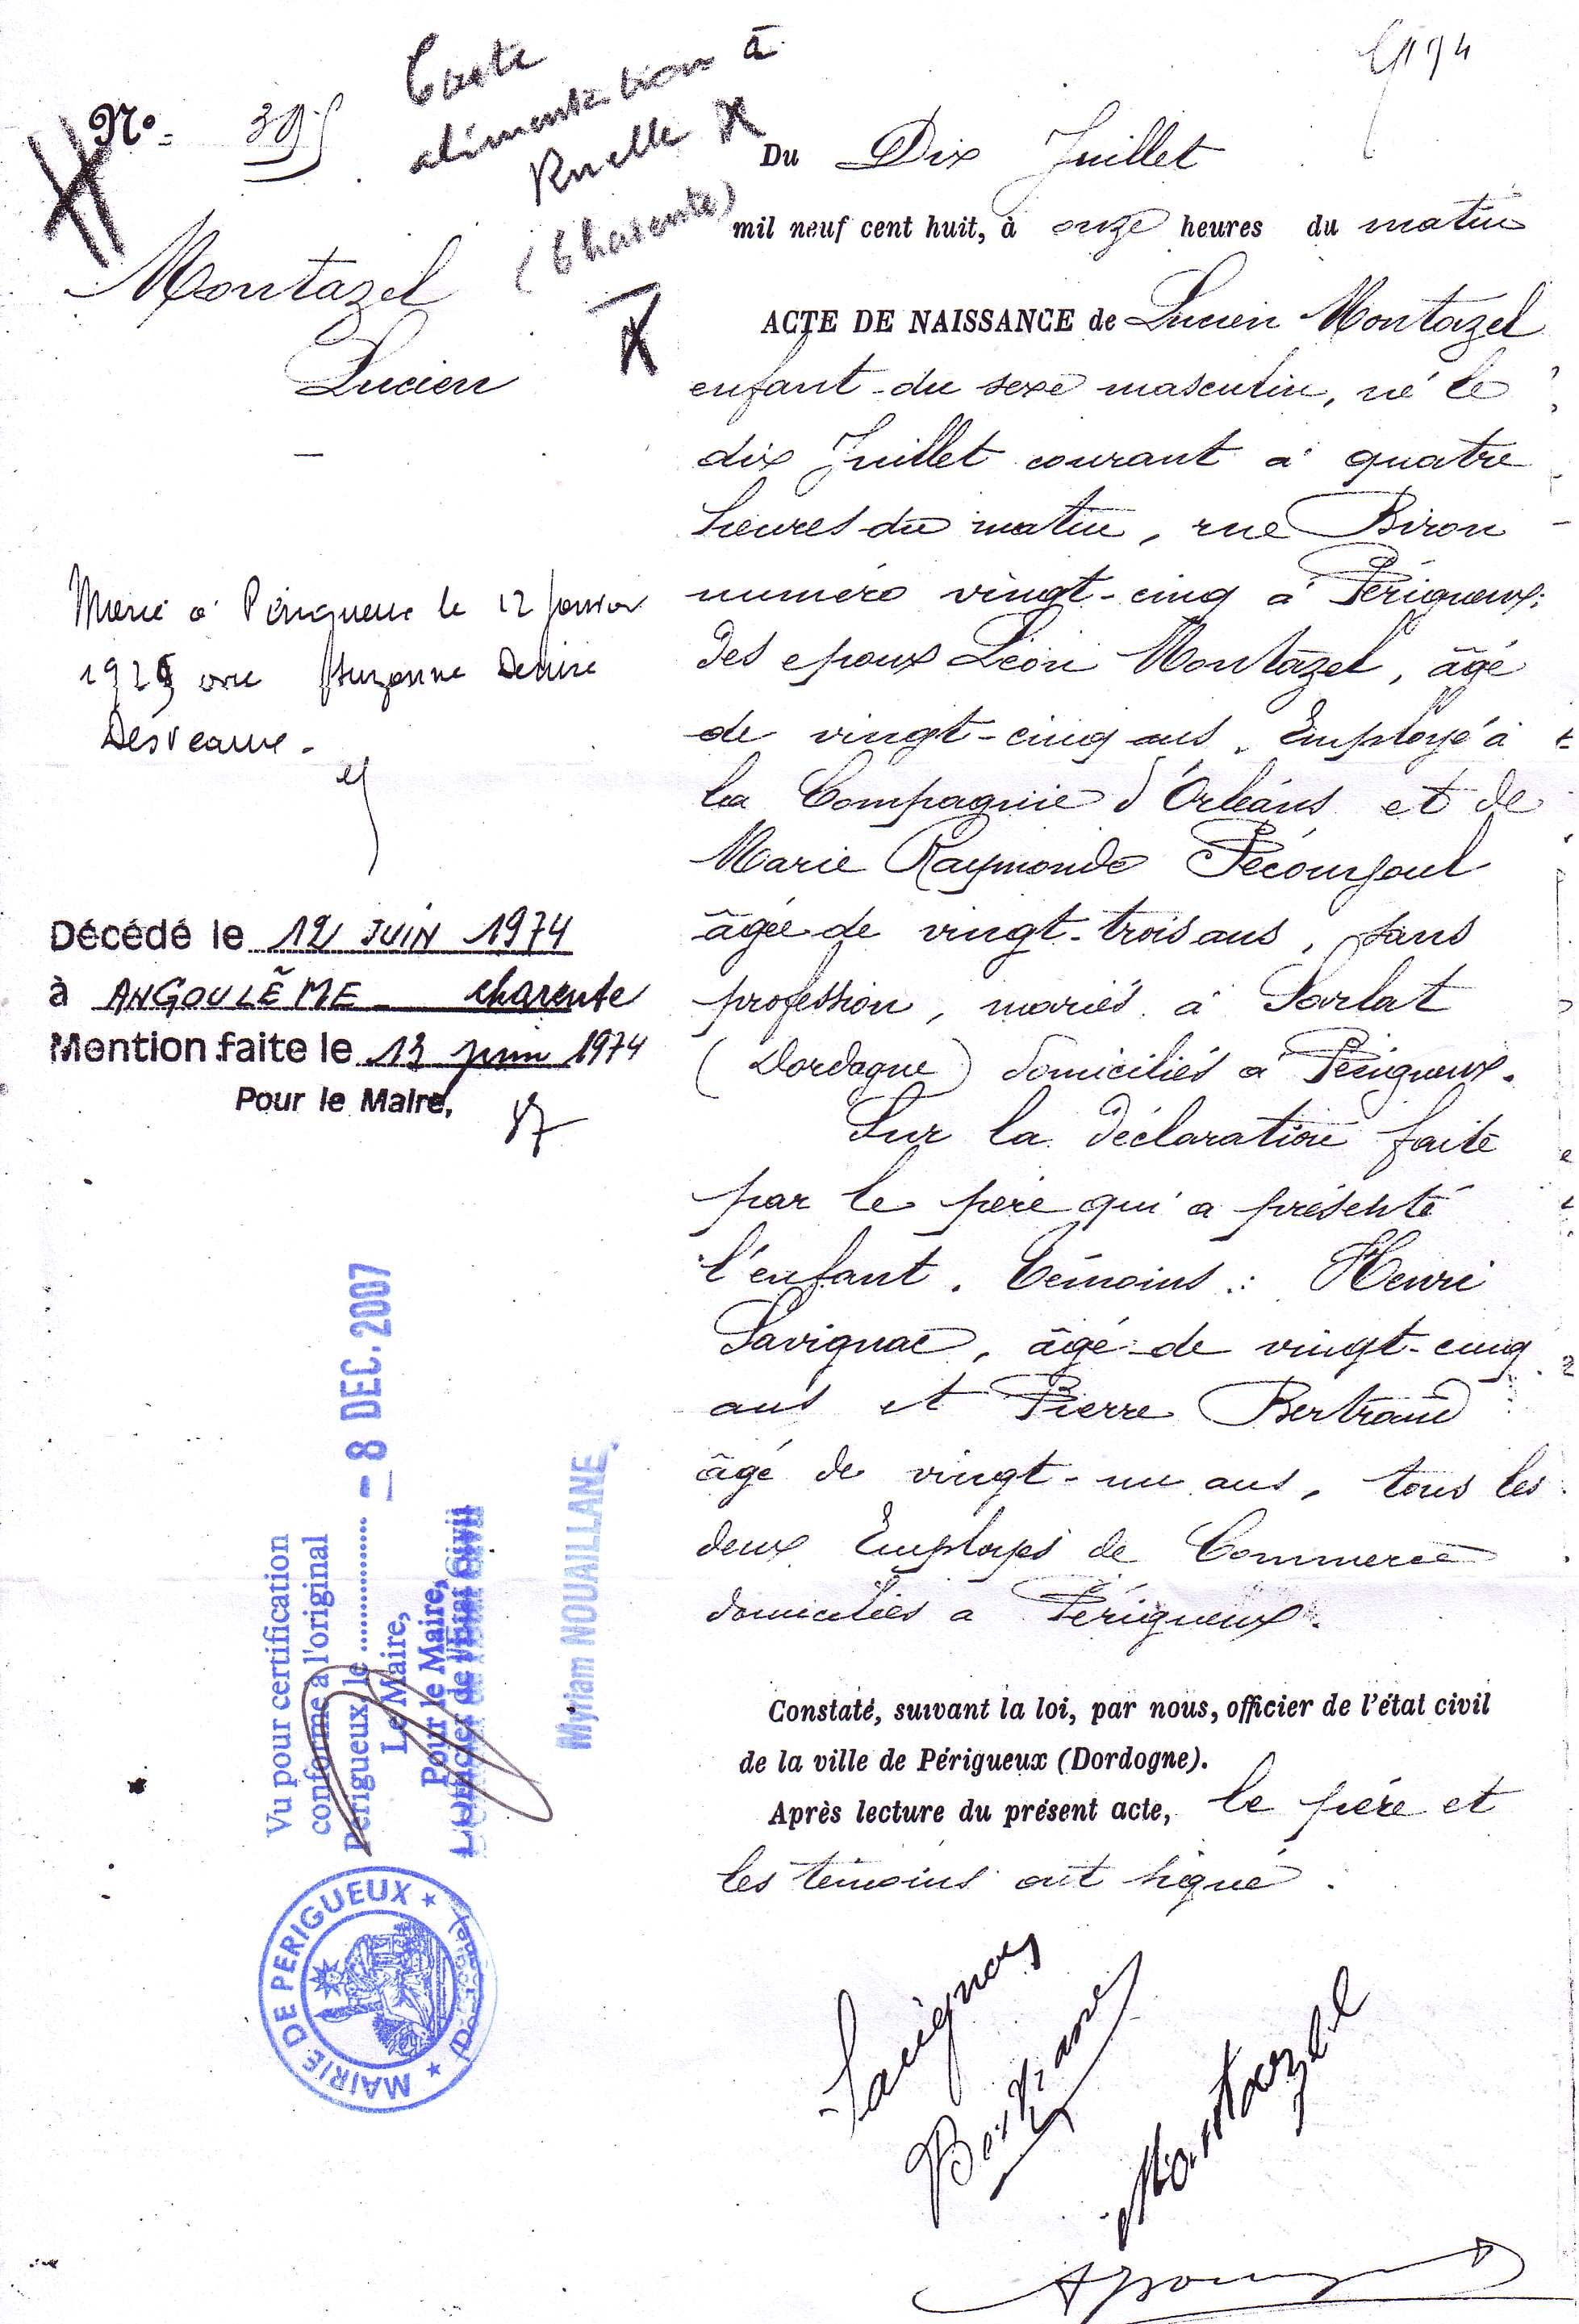 Carte
alimentation à
Ruelle
(Charente)
N°
Montazel
Lucien
Du Dix Juillet
mil neuf cent huit, à onze heures du matin
ACTE DE NAISSANCE de Lucien Montazel
enfant du sexe masculin, né le
dix Juillet courant à quatre
heures du matin, rue Biron
numéro vingt-cinq à Périgueux;
des epoux Léon Montazel, âgé
de vingt-cinq ans, Employé à
la Compagnie d'Orléans et de
Marie Raymonde
âgée de vingt-trois ans, sans
profession, mariés à Sarlat
(Dordogne) domiciliés à Périgueux.
Sur la déclaration faite
par le père qui a présenté
l'enfant. Témoins : Henri
Savignac, âgé de vingt-cinq
ans et Pierre Bertrand
âgé de vingt-un ans, tous les
deux Employés de Commerce
domiciliés à Périgueux.
Constaté, suivant la loi, par nous, officier de l'état civil
de la ville de Périgueux (Dordogne).
Après lecture du présent acte, le père et
les témoins ont signé.
Marié à Périgueux le 12 Janvier
avec Suzanne Denise
Desveaux.
Décédé le 12 JUIN 1974
à ANGOULÊME charente
Mention faite le 13 juin 1974
Pour le Maire,
Vu pour certification
conforme à l'original
Périgueux, le - 8 DEC. 2007
Le Maire,
Pour le Maire,
L'Officier de l'Etat Civil
Myriam NOUAILLANE
MAIRIE DE PERIGUEUX ★ (Dordogne) ★
Savignac
Bertrand
Montazel